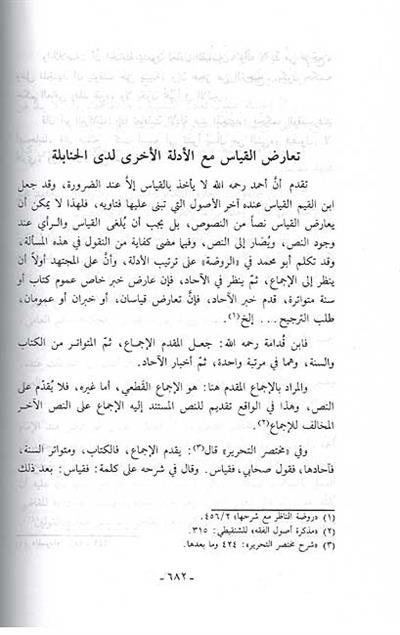 تعارض القياس مع الأدلة الأخرى لدى الحنابلة
تقدم أنَّ أحمد رحمه الله لا يأخذ بالقياس إلاَّ عند الضرورة، وقد جعل
ابن القيم القياس عنده آخر الأصول التي تبنى عليها فتاويه، فلهذا لا يمكن أن
يعارض القياس نصاً من النصوص، بل يجب أن يُلغى القياس والرأي عند
وجود النص، ويُصَار إلى النص، وفيما مضى كفاية من النقول في هذه المسألة،
وقد تكلم أبو محمد في «الروضة» على ترتيب الأدلة، وأنَّ على المجتهد أولاً أن
ينظر إلى الإجماع، ثمَّ ينظر في الآحاد، فإن عارض خبر خاص عموم كتاب أو
سنة متواترة، قدم خبر الآحاد، فإنَّ تعارض قياسان، أو خبران أو عمومان،
طلب الترجيح... إلخ(١).
فابن قُدامة رحمه الله: جعل المقدم الإجماع، ثمَّ المتواتر من الكتاب
والسنة، وهما في مرتبة واحدة، ثمَّ أخبار الآحاد.
والمراد بالإجماع المقدم هنا: هو الإجماع القَطعي، أما غيره، فلا يُقدَّم على
النص، وهذا في الواقع تقديم للنص المستند إليه الإجماع على النص الآخر
المخالف للإجماع(٢).
وفي «مختصر التحرير» قال(٣): يقدم الإجماع، فالكتاب، ومتواتر السنة،
فآحادها، فقول صحابي، فقياس. وقال في شرحه على كلمة: فقياس: بعد ذلك
(١) «روضة الناظر مع شرحها» ٤٥٦/٢.
(٢) «مذكرة أصول الفقه» للشنقيطي: ٣١٥.
(٣) «شرح مختصر التحرير»: ٤٢٤ وما بعدها.
- ٦٨٢ -